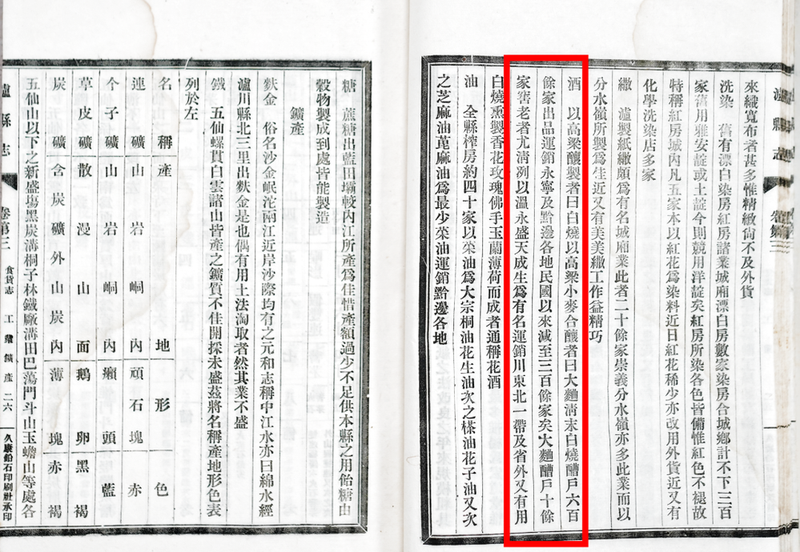 瀘縣志
來織寬布者甚多惟精緻尚不及外貨
洗染　舊有漂白染房紅房諸業城廂漂白房數家染房合城鄉計不下三百
家舊用雅安靛或土靛今則競用洋靛矣紅房所染各色皆備惟紅色不褪故
特稱紅房城內凡五家本以紅花爲染料近日紅花稀少亦改用外貨近又有
化學洗染店多家
繖　瀘製紙繖頗爲有名城廂業此者二十餘家崇義分水嶺亦多此業而以
分水嶺所製爲佳近又有美美繖工作益精巧
酒　以高粱釀製者曰白燒以高梁小麥合釀者曰大麯清末白燒糟戶六百
餘家出品運銷永寧及黔邊各地民國以來減至三百餘家矣大麯糟戶十餘
家窖老者尤清冽以溫永盛天成生爲有名運銷川東北一帶及省外又有用
白燒熏製香花玫瑰佛手玉蘭薄荷而成者通稱花酒
油　全縣榨房約四十家以菜油爲大宗桐油花生油次之樣油花子油又次
之芝麻油萆麻油爲最少菜油運銷黔邊各地
糖　蔗糖出藍田壩較內江所產爲佳惜產額過少不足供本縣之用飴糖由
穀物製成到處皆能製造
鑛產
麩金　俗名沙金岷沱兩江近岸沙際均有之元和志稱中江水亦曰綿水經
瀘川縣北三里出麩金是也偶有用土法淘取者然其業不盛
鐵　五仙螺貫白雲諸山皆產之鑛質不佳開採未盛茲將名稱產地形色表
列於左
名稱　產地　形色
連　礦　山岩峒內　頑石塊　赤
个子礦　山岩峒內　癩頭　藍
草皮礦　散漫山面　鵝卵　黑褐
炭　礦　含炭礦外山炭內　薄塊　赤褐
五仙山以下之新盛塲黑炭溝桐子林鐵廠溝田巴蕩門斗山玉蟾山等處各
瀘縣志　卷第三　食貨志　工業　鑛產　二六　久康鉛石印刷社承印